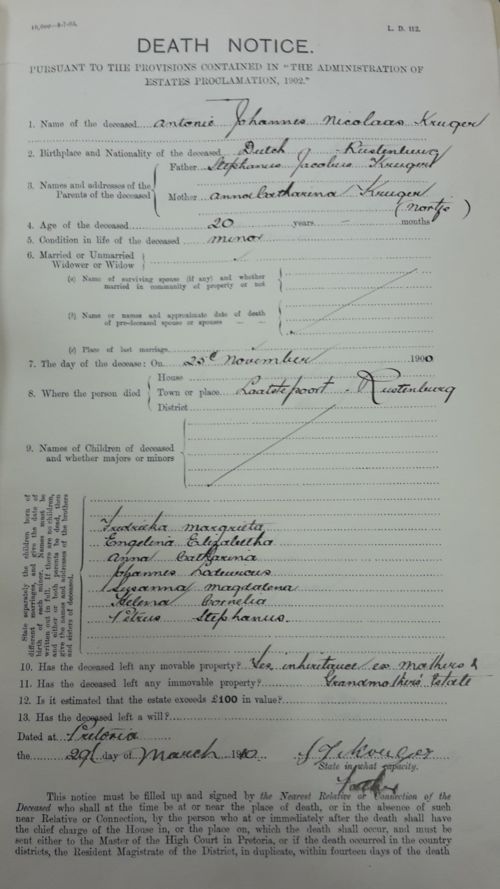 L. D. 112.
DEATH NOTICE.
PURSUANT TO THE PROVISIONS CONTAINED IN "THE ADMINISTRATION OF
ESTATES PROCLAMATION, 1902."
1. Name of the deceased Antonie Johannes Nicolaas Kruger
2. Birthplace and Nationality of the deceased Dutch - Rustenburg
3. Names and addresses of the Parents of the deceased
Father Stephanus Jacobus Kruger
Mother Anna Catharina Kruger
4. Age of the deceased 20 years - months
5. Condition in life of the deceased minor
6. Married or Unmarried
Widower or Widow
(a) Name of surviving spouse (if any) and whether
married in community of property or not
(b) Name or names and approximate date of death
of pre-deceased spouse or spouses
(c) Place of last marriage
7. The day of the decease: On 25 November 1900
8. Where the person died
House
Town or place Laatstepoort - Rustenburg
District
9. Names of Children of deceased
and whether majors or minors
State separately the children born of
different marriages, and give the date of
birth of each minor. Names must be
written out in full. If there are no children,
and either or both parents be dead, then
give the names and addresses of the brothers
and sisters of deceased.
Fredricka Margrieta
Engelena Elizabetha
Anna Catharina
Johannes Lodewicus
Susanna Magdalena
Helena Cornelia
Petrus Stephanus.
10. Has the deceased left any movable property? Yes, inheritance ex Mothers &
11. Has the deceased left any immovable property? Grandmothers' Estate
12. Is it estimated that the estate exceeds £100 in value?
13. Has the deceased left a will?
Dated at Pretoria
the 29 day of March 1910
State in what capacity.
Father
This notice must be filled up and signed by the Nearest Relative or Connection of the
Deceased who shall at the time be at or near the place of death, or in the absence of such
near Relative or Connection, by the person who at or immediately after the death shall have
the chief charge of the House in, or the place on, which the death shall occur, and must be
sent either to the Master of the High Court in Pretoria, or if the death occurred in the country
districts, the Resident Magistrate of the District, in duplicate, within fourteen days of the death